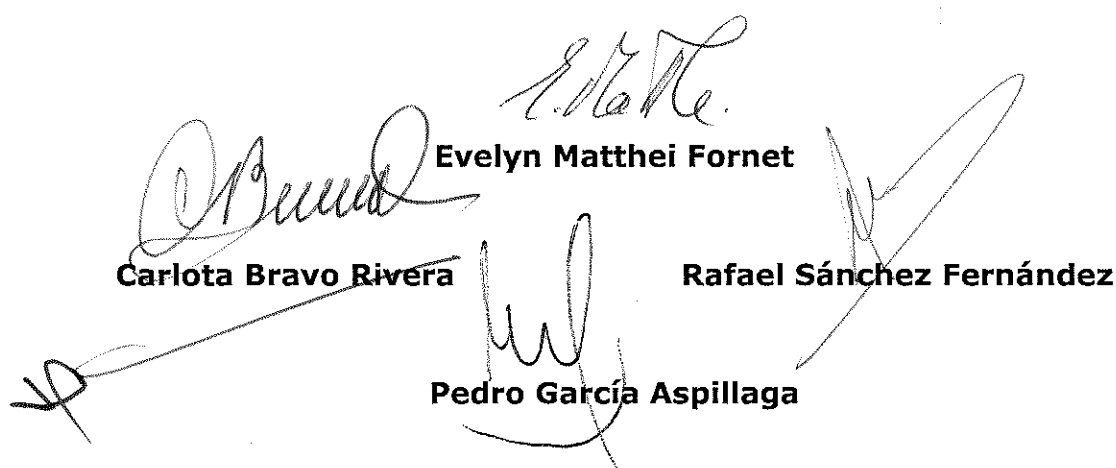 E. Matthe.
Evelyn Matthei Fornet
Carlota Bravo Rivera
Rafael Sánchez Fernández
Pedro García Aspillaga